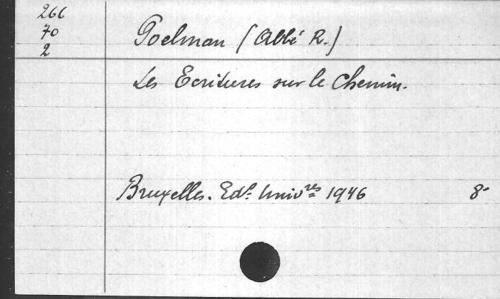 266
70
2
Poelman (Abbé R.)
Les Ecritures sur le Chemin.
Bruxelles. Edn. Univres 1946 8°